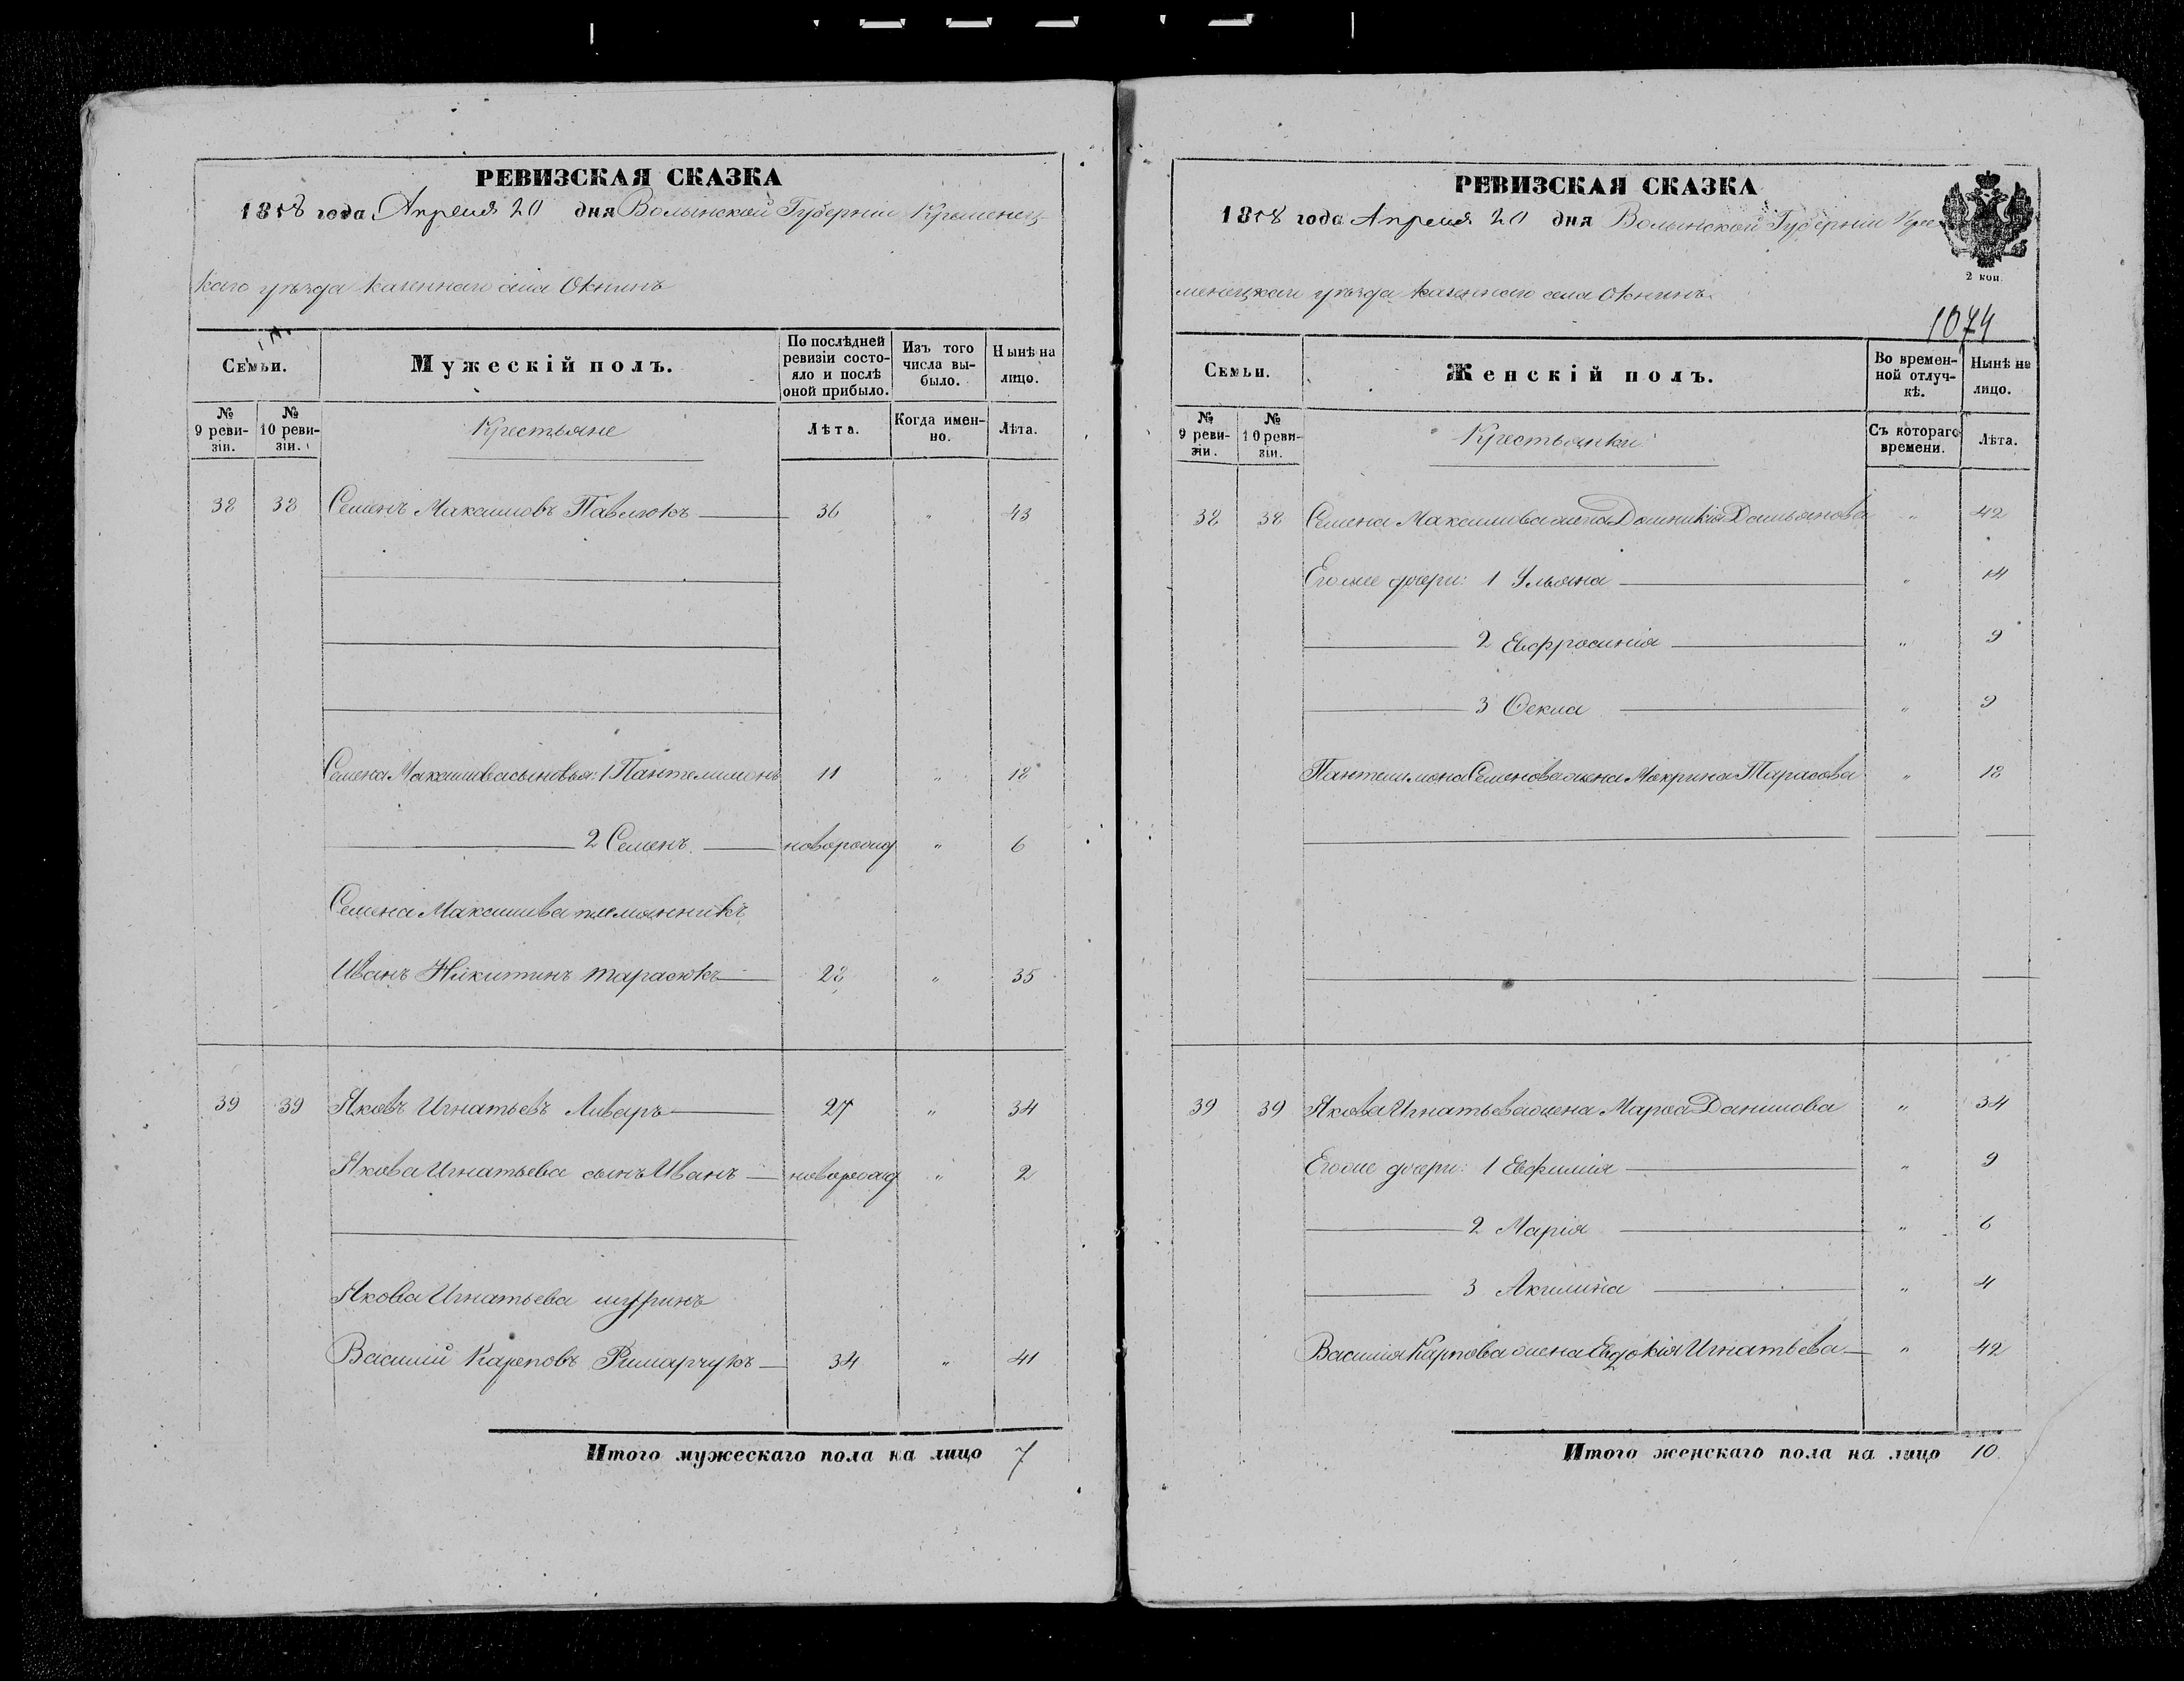 РЕВИЗСКАЯ СКАЗКА
1858 года Апреля 20 дня Волынской Губернии Кременец
каго уѣзда казеннаго села Окнинъ
Семьи.
Мужескій полъ.
По послѣдней ревизіи состояло и послѣ оной прибыло.
Изъ того числа выбыло.
Нынѣ на лицо.
№ 9 ревизіи.
№ 10 ревизіи.
Крестьяне
Лѣта.
Когда именно.
Лѣта.
38 38 Семенъ Максимовъ Павлюкъ 36 " 43
Семена Максимова сыновья: 1 Пантелимонъ 11 " 18
2 Семенъ новорожд " 6
Семена Максимова племянникъ
Иванъ Никитинъ Тарасюкъ 28 " 35
39 39 Яковъ Игнатьевъ Ливаръ 27 " 34
Якова Игнатьева сынъ Иванъ новорожд " 2
Якова Игнатьева шуринъ
Василій Карповъ Римарчукъ 34 " 41
Итого мужескаго пола на лицо 7
РЕВИЗСКАЯ СКАЗКА
1858 года Апреля 20 дня Волынской Губерніи Кре
менецкаго уѣзда казеннаго села Окнинъ.
2 коп.
1074
Семьи.
Женскій полъ.
Во временной отлучкѣ.
Нынѣ на лицо.
№ 9 ревизіи.
№ 10 ревизіи.
Крестьянки
Съ котораго времени.
Лѣта.
38 38 Семена Максимова жена Домникія Дамьянова " 42
Его же дочери: 1 Ульяна " 14
2 Евфросинія " 9
3 Ѳекла " 9
Пантелимона Семенова жена Макрина Тарасова " 18
39 39 Якова Игнатьева жена Марѳа Данилова " 34
Его же дочери: 1 Евфимія " 9
2 Марія " 6
3 Акилина " 4
Василія Карпова жена Евдокія Игнатьева " 42
Итого женскаго пола на лицо 10